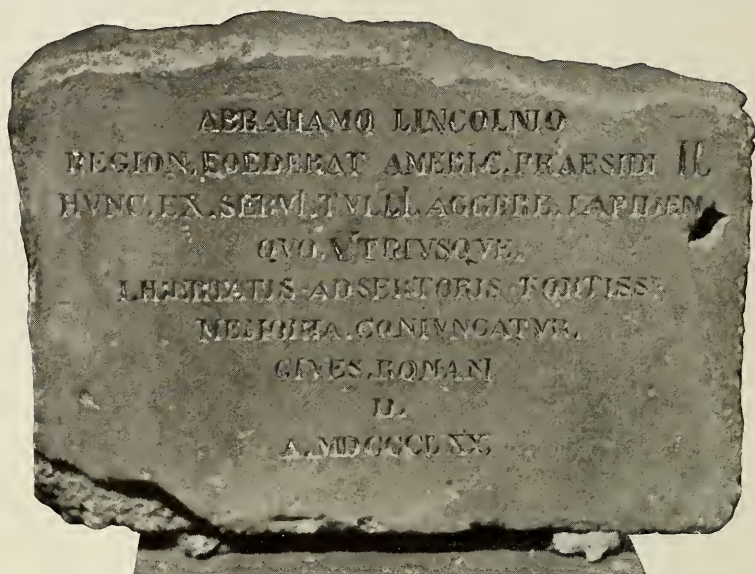 ABRAHAMO LINCOLNIO
REGION. FOEDERAT AMERIC. PRAESIDI II
HVNC. EX. SERVI. TVLLI. AGGERE. LAPIDEM
QVO. VTRIVSQVE.
LIBERTATIS ADSERTORIS FORTISS.
MEMORIA. CONIVNGATVR.
CIVES. ROMANI
D.
A. MDCCCLXV.